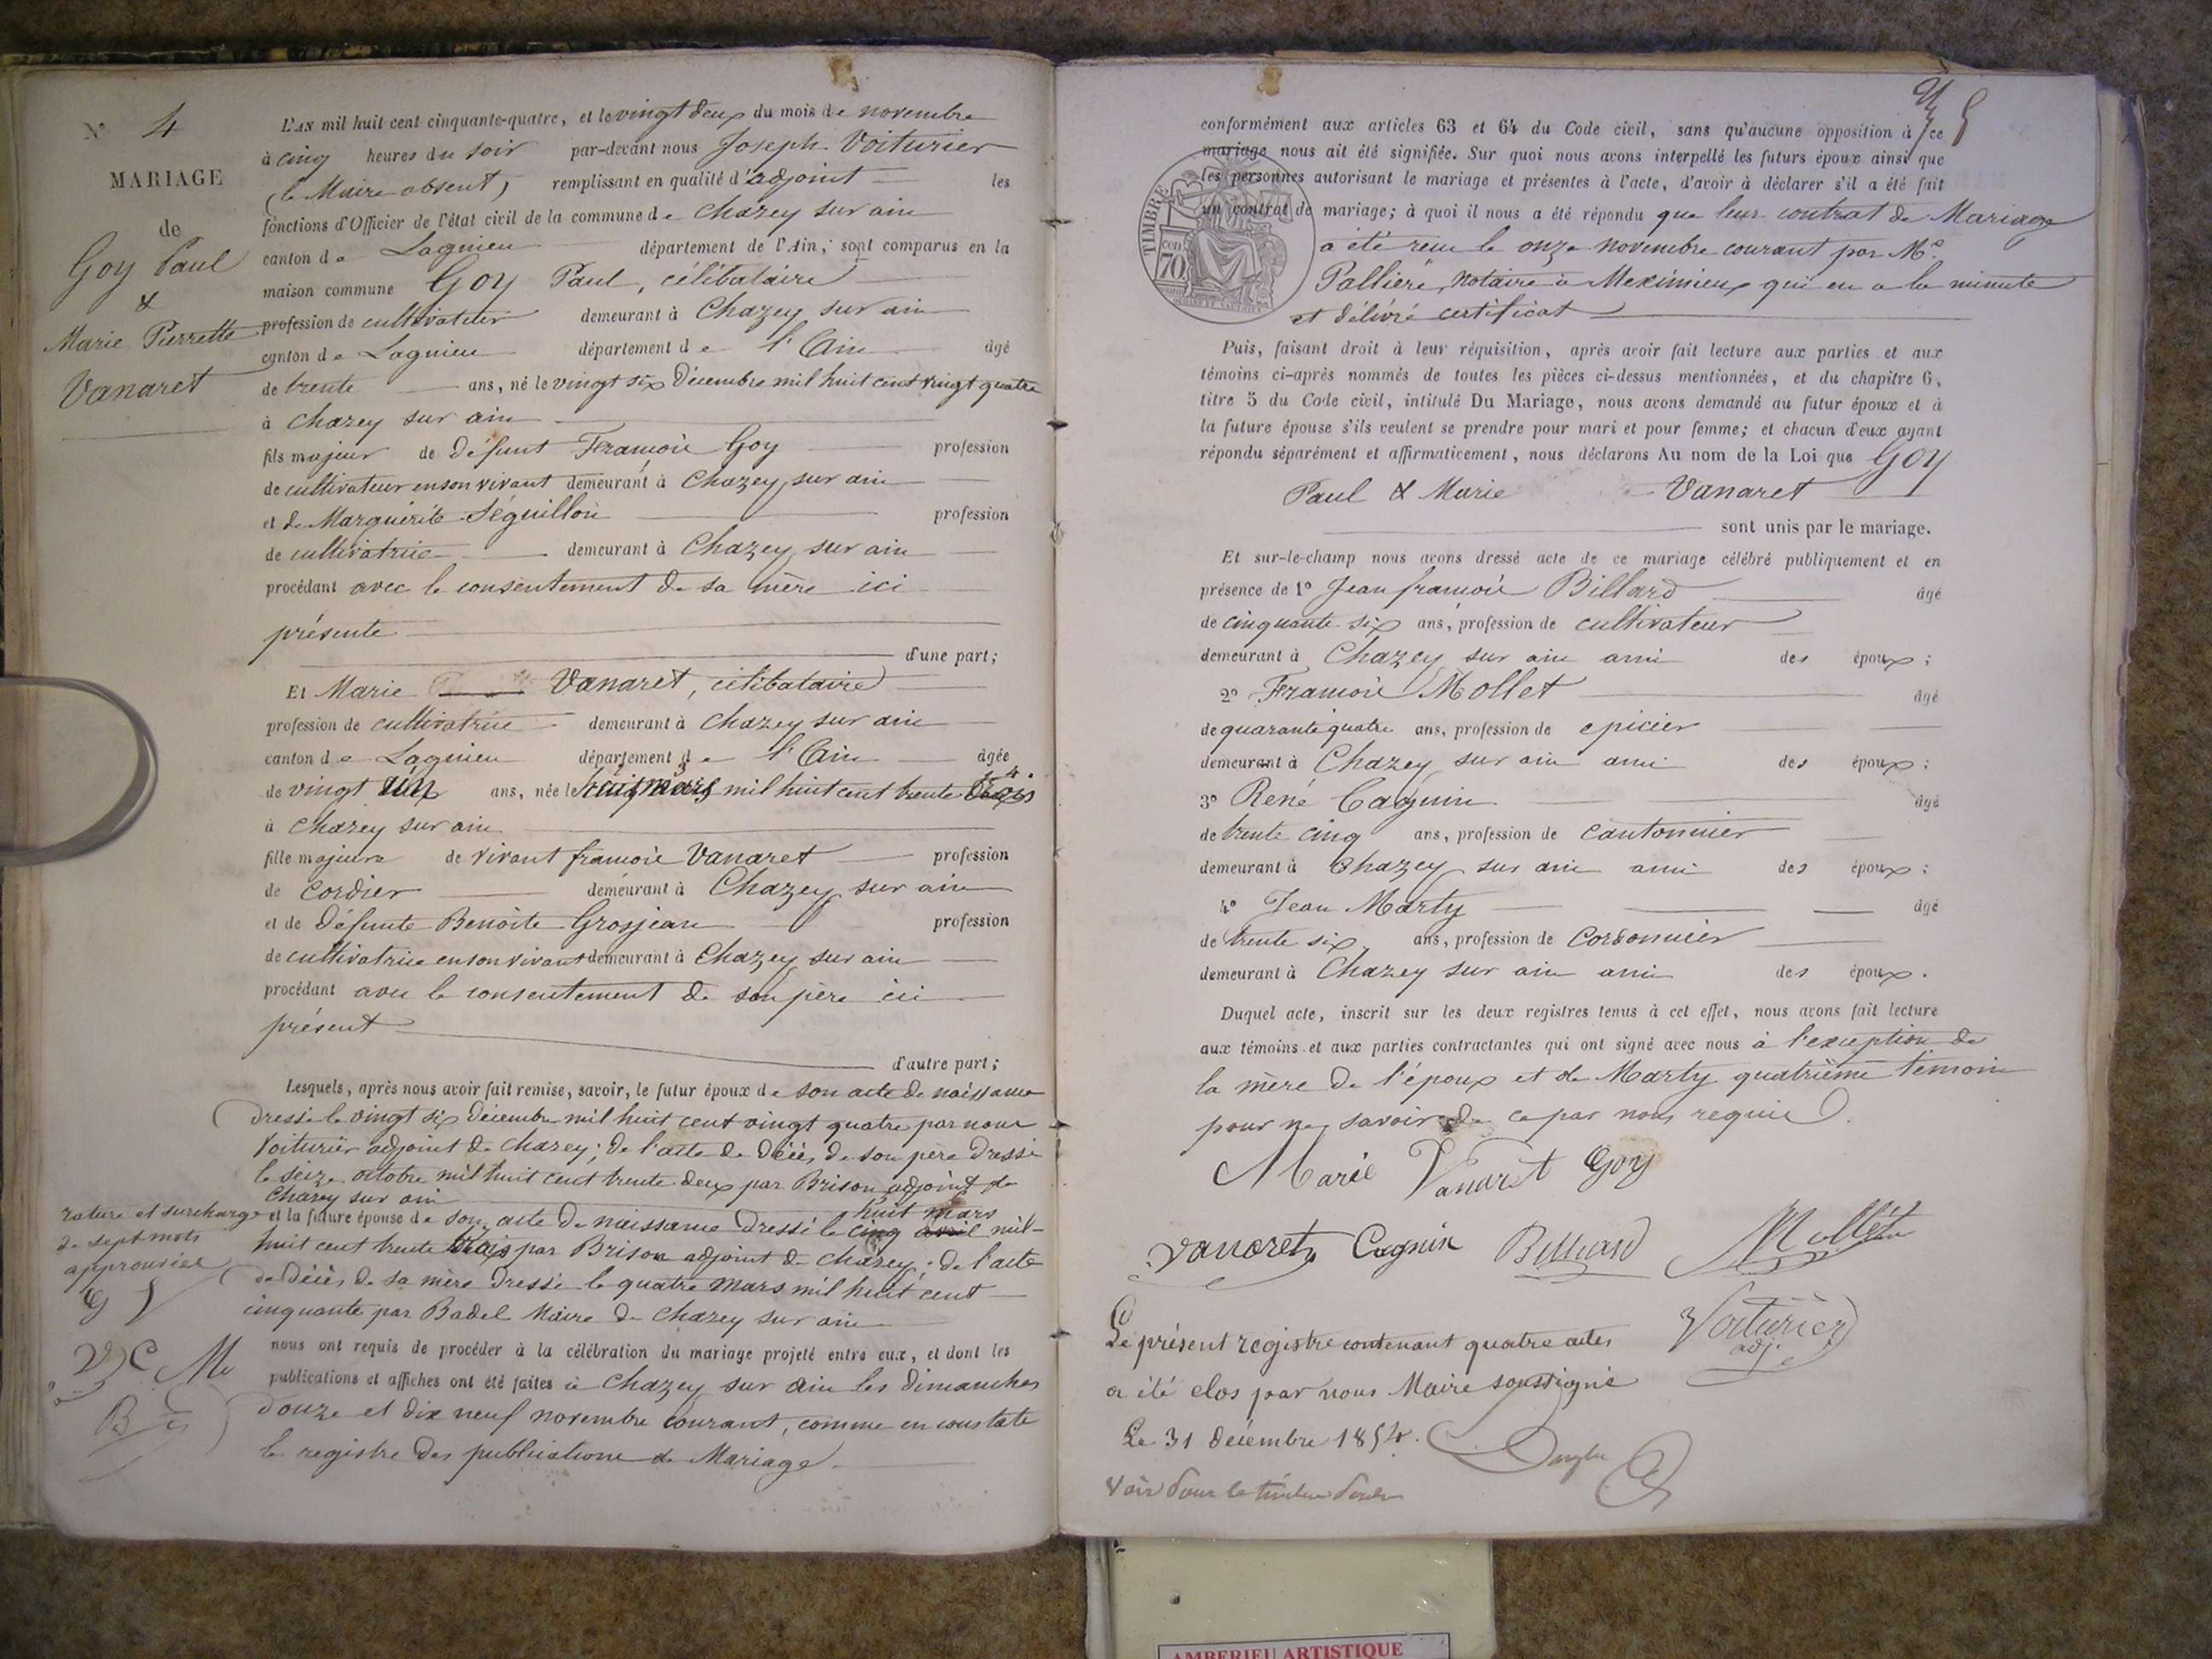 N° 4
MARIAGE
de
Goy Paul
&
Marie Pierrette
Vanaret
L'AN mil huit cent cinquante-quatre, et le vingt deux du mois de novembre
à cinq heures du soir par-devant nous Joseph Voiturier
(le Maire absent) remplissant en qualité d'adjoint les
fonctions d'Officier de l'état civil de la commune de Chazey sur ain
canton de Lagnieu département de l'Ain, sont comparus en la
maison commune Goy Paul, célibataire
profession de cultivateur demeurant à Chazey sur ain
canton de Lagnieu département de l'Ain âgé
de trente ans, né le vingt six Décembre mil huit cent vingt quatre
à Chazey sur ain
fils majeur de Défunt François Goy profession
de cultivateur en son vivant demeurant à Chazey sur ain
et de Marguerite Séguillon profession
de cultivatrice demeurant à Chazey sur ain
procédant avec le consentement de sa mère ici
présente
d'une part;
Et Marie Vanaret, célibataire
profession de cultivatrice demeurant à Chazey sur ain
canton de Lagnieu département de l'Ain âgée
de vingt un ans, née le huit mars mil huit cent trente trois
à Chazey sur ain
fille majeure de vivant françois Vanaret profession
de cordier demeurant à Chazey sur ain
et de Défunte Benoite Grosjean profession
de cultivatrice en son vivant demeurant à Chazey sur ain
procédant avec le consentement de son père ici
présent
d'autre part;
Lesquels, après nous avoir fait remise, savoir, le futur époux de son acte de naissance
Dressé le vingt six Décembre mil huit cent vingt quatre par nous
Voiturier adjoint de Chazey; de l'acte de Décès de son père Dressé
le seize octobre mil huit cent trente deux par Brison adjoint de
Chazey sur ain
huit mars
et la future épouse de son acte de naissance Dressé le cinq avril mil
huit cent trente trois par Brison adjoint de Chazey; de l'acte
de Décès de sa mère Dressé le quatre mars mil huit cent
cinquante par Badel Maire de Chazey sur ain
rature et surcharge
de sept mots
approuvées
G V
V C Mo
B
nous ont requis de procéder à la célébration du mariage projeté entre eux, et dont les
publications et affiches ont été faites à Chazey sur Ain les dimanches
Douze et dix neuf novembre courant, comme en constate
le registre des publications de Mariage
conformément aux articles 63 et 64 du Code civil, sans qu'aucune opposition à ce
mariage nous ait été signifiée. Sur quoi nous avons interpellé les futurs époux ainsi que
les personnes autorisant le mariage et présentes à l'acte, d'avoir à déclarer s'il a été fait
un contrat de mariage; à quoi il nous a été répondu que leur contrat de Mariage
a été reçu le onze novembre courant par Me
Pallière, notaire à Meximieux qui en a la minute
et délivré certificat
TIMBRE
70
Puis, faisant droit à leur réquisition, après avoir fait lecture aux parties et aux
témoins ci-après nommés de toutes les pièces ci-dessus mentionnées, et du chapitre 6,
titre 5 du Code civil, intitulé Du Mariage, nous avons demandé au futur époux et à
la future épouse s'ils veulent se prendre pour mari et pour femme; et chacun d'eux ayant
répondu séparément et affirmativement, nous déclarons Au nom de la Loi que Goy
Paul & Marie Vanaret
sont unis par le mariage.
Et sur-le-champ nous avons dressé acte de ce mariage célébré publiquement et en
présence de 1° Jean françois Billard âgé
de cinquante six ans, profession de cultivateur
demeurant à Chazey sur ain ami des époux;
2° François Mollet âgé
de quarante quatre ans, profession de epicier
demeurant à Chazey sur ain ami des époux;
3° René Cagnin âgé
de trente cinq ans, profession de cantonnier
demeurant à Chazey sur ain ami des époux;
4° Jean Marty âgé
de trente six ans, profession de Cordonnier
demeurant à Chazey sur ain ami des époux.
Duquel acte, inscrit sur les deux registres tenus à cet effet, nous avons fait lecture
aux témoins et aux parties contractantes qui ont signé avec nous à l'exception de
la mère de l'époux et de Marty quatrième témoin
pour ne savoir de ce par nous requis.
Marie Vanaret Goy
Vanaret Cagnin Billiard Mollet
Voiturier
adj.
Le présent registre contenant quatre actes
a été clos par nous Maire soussigné
Le 31 décembre 1854.
AMBERIEU ARTISTIQUE